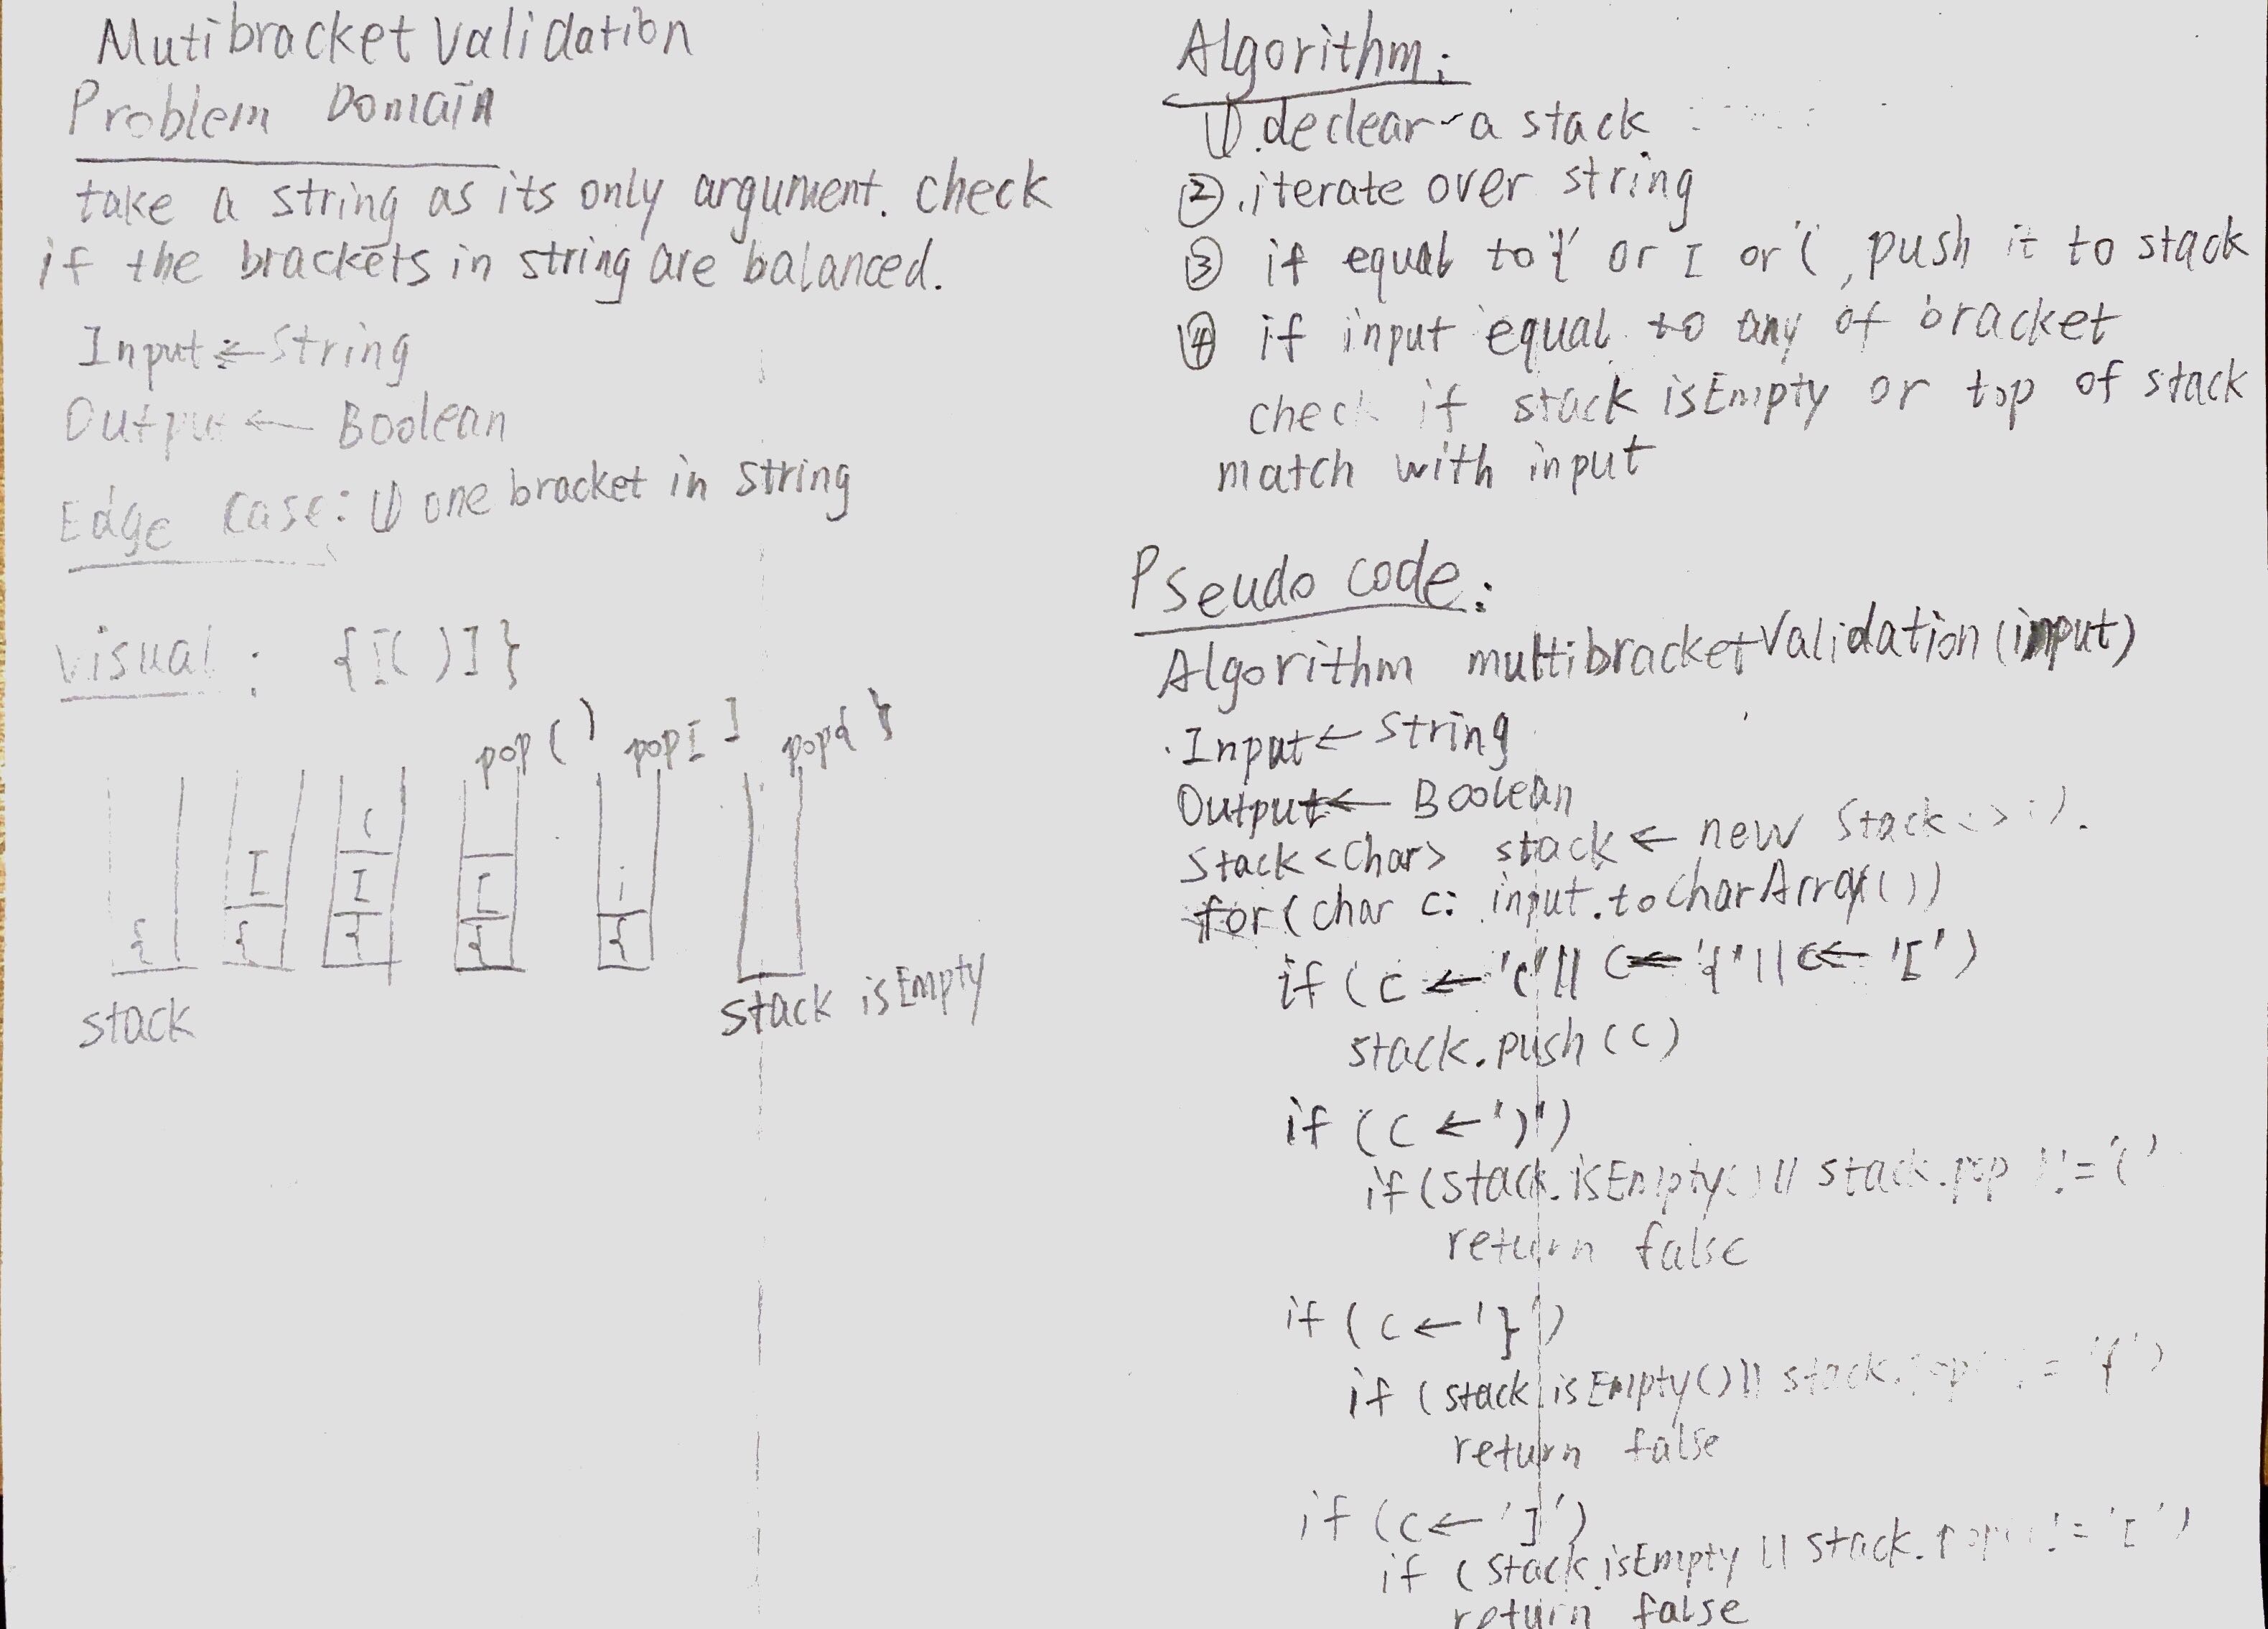 Mutibracket Validation
Problem Domain
take a string as its only argument. check
if the brackets in string are balanced.
Input ← String
Output ← Boolean
Edge Case: ① one bracket in string
visual : {[()]}
pop ( ) pop[ ] pop{ }
(
[ [ [
{ { { { {
stack
stack isEmpty
Algorithm:
① declear a stack
② iterate over string
③ if equal to '{' or [ or '(, push it to stack
④ if input equal to any of bracket
check if stack isEmpty or top of stack
match with input
Pseudo code:
Algorithm multibracketValidation(input)
Input ← String
Output ← Boolean
Stack <Char> stack ← new Stack<>().
for (char c: input.toCharArray())
if (c ← '(' || c ← '{' || c ← '[')
stack.push(c)
if (c ← ')')
if (stack.isEmpty() || stack.pop()!= '('
return false
if (c ← '}')
if (stack.isEmpty() || stack.pop()!= '{')
return false
if (c ← ']')
if (stack.isEmpty || stack.pop()!= '[')
return false